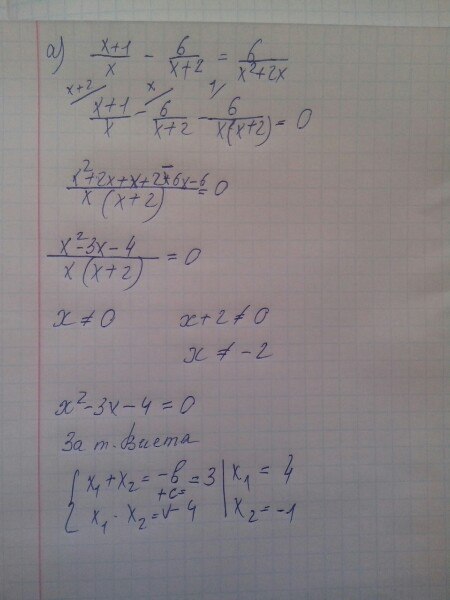 а) (x+1)/x - 6/(x+2) = 6/(x²+2x)
x+2 x 1
(x+1)/x - 6/(x+2) - 6/(x(x+2)) = 0
(x²+2x+x+2-6x-6)/(x(x+2)) = 0
(x²-3x-4)/(x(x+2)) = 0
x ≠ 0 x+2 ≠ 0
x ≠ -2
x²-3x-4 = 0
За т. Виета
{ x₁ + x₂ = -b = 3 | x₁ = 4
x₁ · x₂ = +c = -4 | x₂ = -1